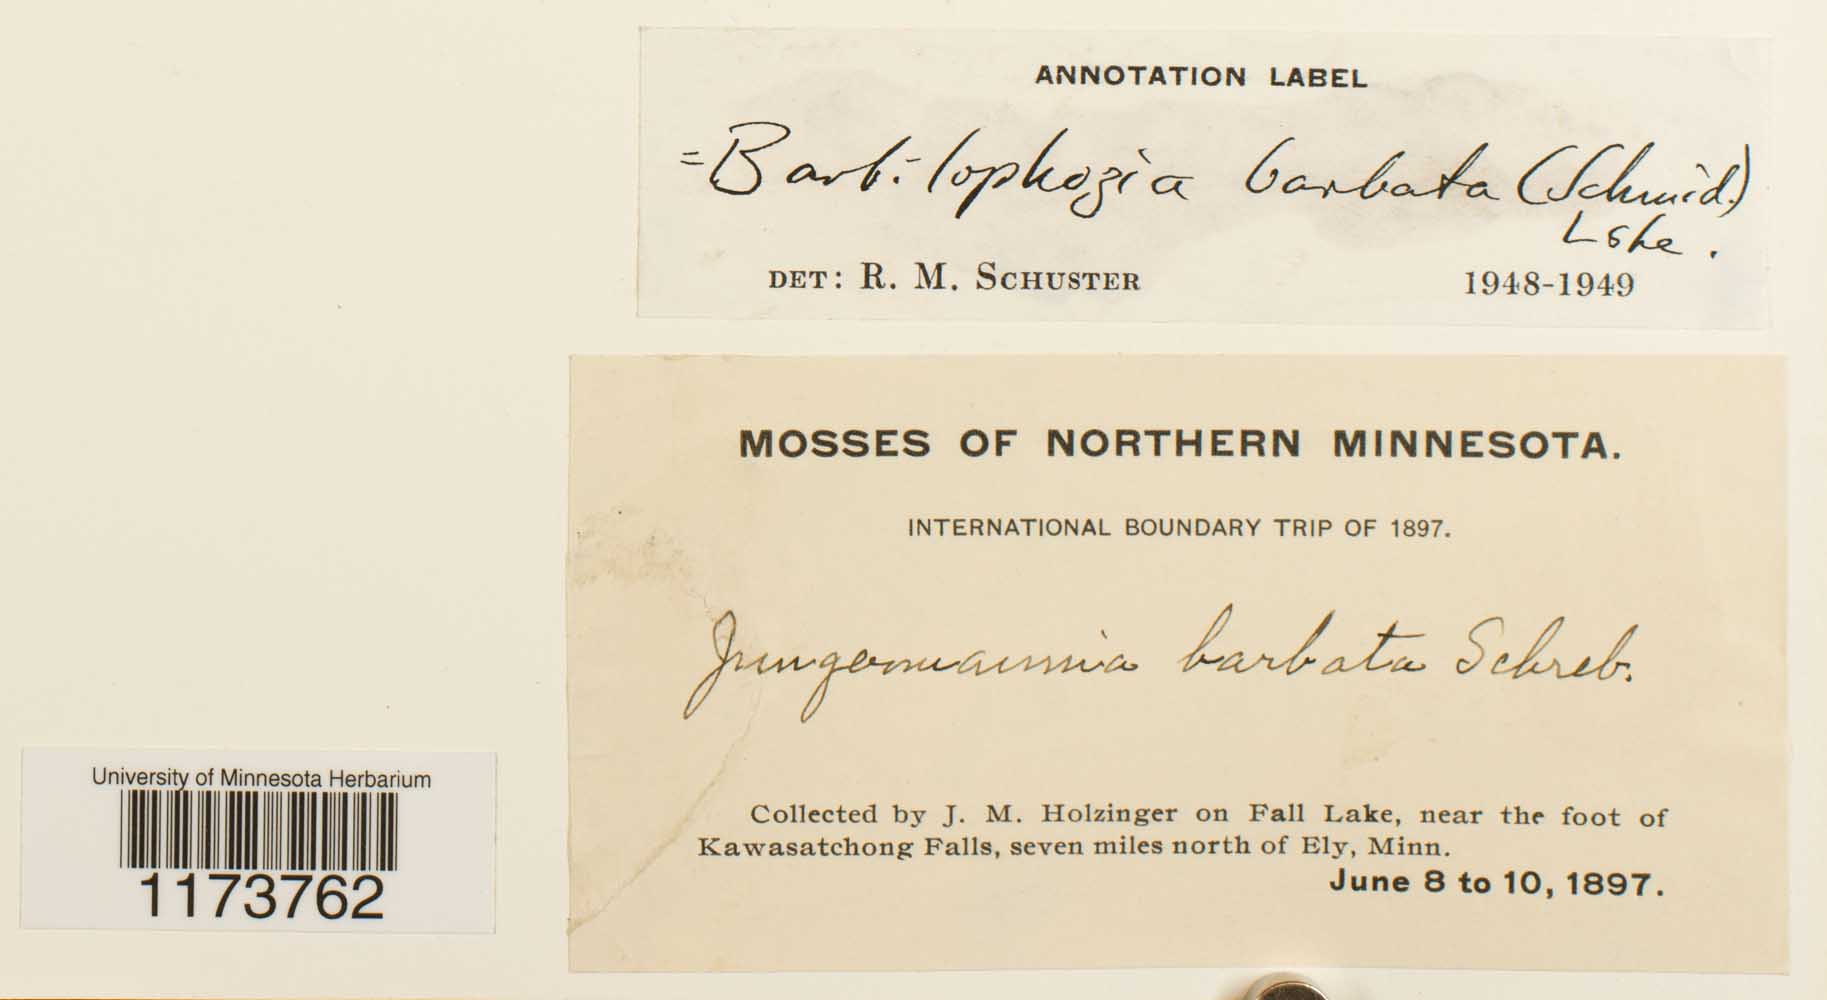 ANNOTATION LABEL
=Barbilophozia barbata (Schmid.)
Lske.
DET: R. M. SCHUSTER 1948-1949
MOSSES OF NORTHERN MINNESOTA.
INTERNATIONAL BOUNDARY TRIP OF 1897.
Jungermannia barbata Schreb.
Collected by J. M. Holzinger on Fall Lake, near the foot of
Kawasatchong Falls, seven miles north of Ely, Minn.
June 8 to 10, 1897.
University of Minnesota Herbarium
1173762